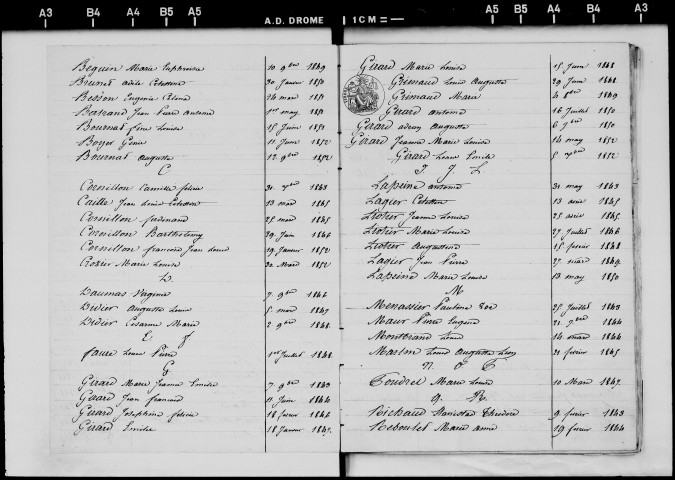 A3 B4 A4 B5 A5
A.D. DROME 1 CM =
A5 B5 A4 B4 A3
Beguin Marie Euphrosine 10 9bre 1849
Brunet Celestine 30 Janvier 1850
Besson Eugenie 24 mars 1851
Bertrand Jean Pierre Antoine 1er may 1851
Bournat Louise 15 Juin 1851
Boyer Génie 11 Juin 1852
Bournat Auguste 12 9bre 1852
C
Cornillon Camille felicie 31 1843
Caille Jean Louis Celestin 13 mars 1845
Cornillon ferdinand 25 mars 1845
Cornillon Barthelemy 29 Juin 1846
Cornillon francois Jean Louis 19 Janvier 1852
Crozier Marie Louise 30 Mars 1852
D.
Daumas Virginie 7 9bre 1846
Didier Auguste Louis 5 mars 1847
Didier Cesarine Marie 2 9bre 1848
E f
faure Louis Pierre 1er Juillet 1848
G
Girard Marie Jeanne Emilie 7 9bre 1843
Girard Jean francois 11 Juin 1844
Girard Josephine felicie 18 fevrier 1846
Girard Emilie 18 Janvier 1847
Girard Marie Louise 15 Juin 1848
Grimaud Louis Auguste 29 Juin 1848
Grimaud Marie 1849
Girard Antoine 16 Juillet 1850
Girard Auguste 1850
Girard Jeanne Marie Louise 14 may 1852
Girard Louis Emile 5 1852
I J L
Lapeine Antoine 31 may 1843
Lagier Celestin 13 avril 1845
Liotier Jeanne Louise 25 avril 1845
Liotier Marie Louise 27 Juillet 1846
Liotier Augustine 15 fevrier 1848
Lagier Jean Pierre 27 mars 1849
Lapeine Marie Louise 13 may 1850
M
Menassier Pauline Zoé 25 Juillet 1843
Maur Pierre Eugene 21 1844
Montbrand Louis 14 mars 1844
Martin Louis Auguste Léon 21 fevrier 1845
N O P
Poudrel Marie Louise 10 Mars 1847
Q R.
Richaud Stanislas Théodore 9 fevrier 1843
Reboulet Marie Anne 19 fevrier 1844